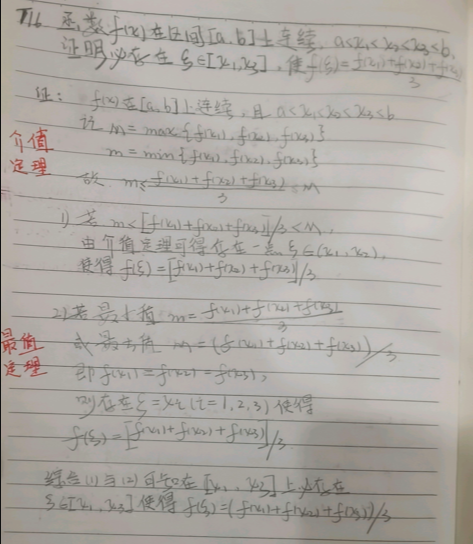 T16 函数f(x)在区间[a,b]上连续, a<x₁<x₂<x₃<b,
证明必存在ξ∈[x₁,x₃],使f(ξ)=f(x₁)+f(x₂)+f(x₃)/3
证: f(x)在[a,b]上连续,且 a<x₁<x₂<x₃<b
记 M=max{f(x₁),f(x₂),f(x₃)}
介值定理
m=min{f(x₁),f(x₂),f(x₃)}
故 m≤f(x₁)+f(x₂)+f(x₃)/3≤M
1)若 m<[f(x₁)+f(x₂)+f(x₃)]/3<M,
由介值定理可得存在一点ξ∈(x₁,x₂),
使得f(ξ)=[f(x₁)+f(x₂)+f(x₃)]/3
2)若最小值 m=f(x₁)+f(x₂)+f(x₃)/3
最值定理
或最大值 M=(f(x₁)+f(x₂)+f(x₃))/3
即f(x₁)=f(x₂)=f(x₃),
则存在ξ=xᵢ(i=1,2,3)使得
f(ξ)=[f(x₁)+f(x₂)+f(x₃)]/3
综合(1)与(2)可知在[x₁,x₃]上必存在
ξ∈[x₁,x₃]使得f(ξ)=(f(x₁)+f(x₂)+f(x₃))/3